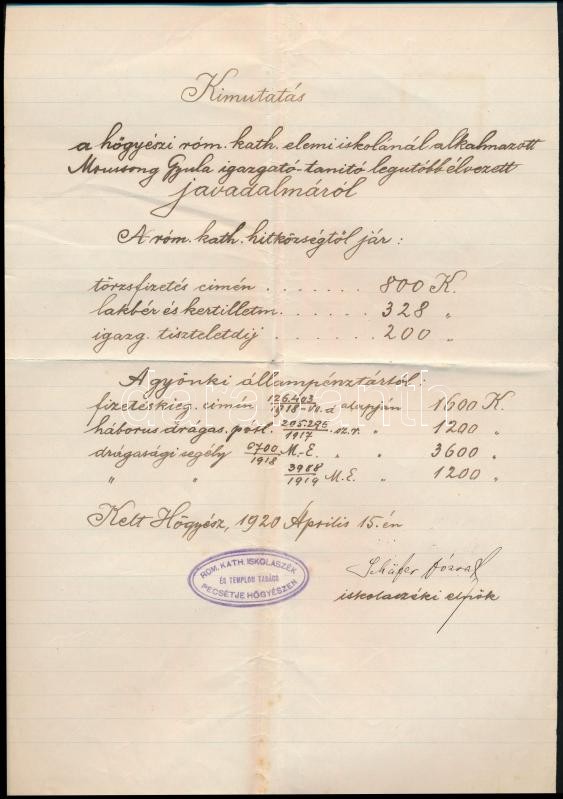 Kimutatás
a hőgyészi róm. kath. elemi iskolánál alkalmazott
Gyula igazgató-tanitó legutóbb élvezett
javadalmáról
A róm. kath. hitközségtől jár:
törzsfizetés cimén . . . . . . . 800 K.
lakbér és kertilletm. . . . . . 328 "
igazg. tiszteletdij . . . . . . 200 "
A gyönki állampénztártól:
fizetéskieg. cimén 126.403/1918 alapján 1600 K.
háborus drágas. pótl. 205.295/1917 sz. r. " 1200 "
drágasági segély 0700/1918 M.-E. " " 3600 "
" " 3988/1919 M.E. " 1200 "
Kelt Hőgyész, 1920 Április 15.én
RÓM. KATH. ISKOLASZÉK
ÉS TEMPLOM TANÁCS
PECSÉTJE HŐGYÉSZEN
Schäfer
iskolaszéki elnök
darabanth.com